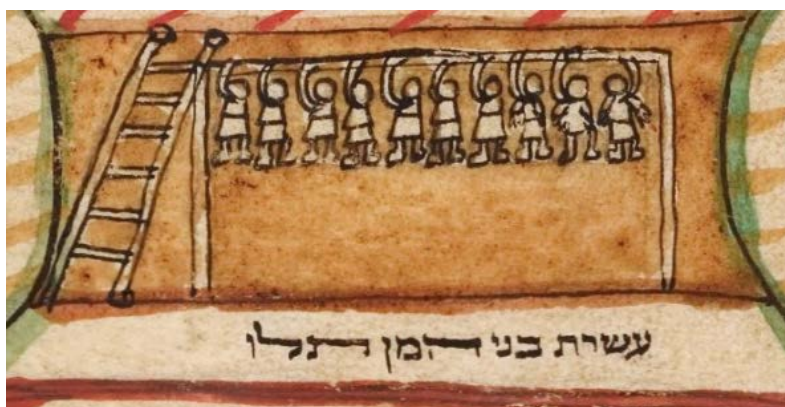 עשרת בני המן תלו